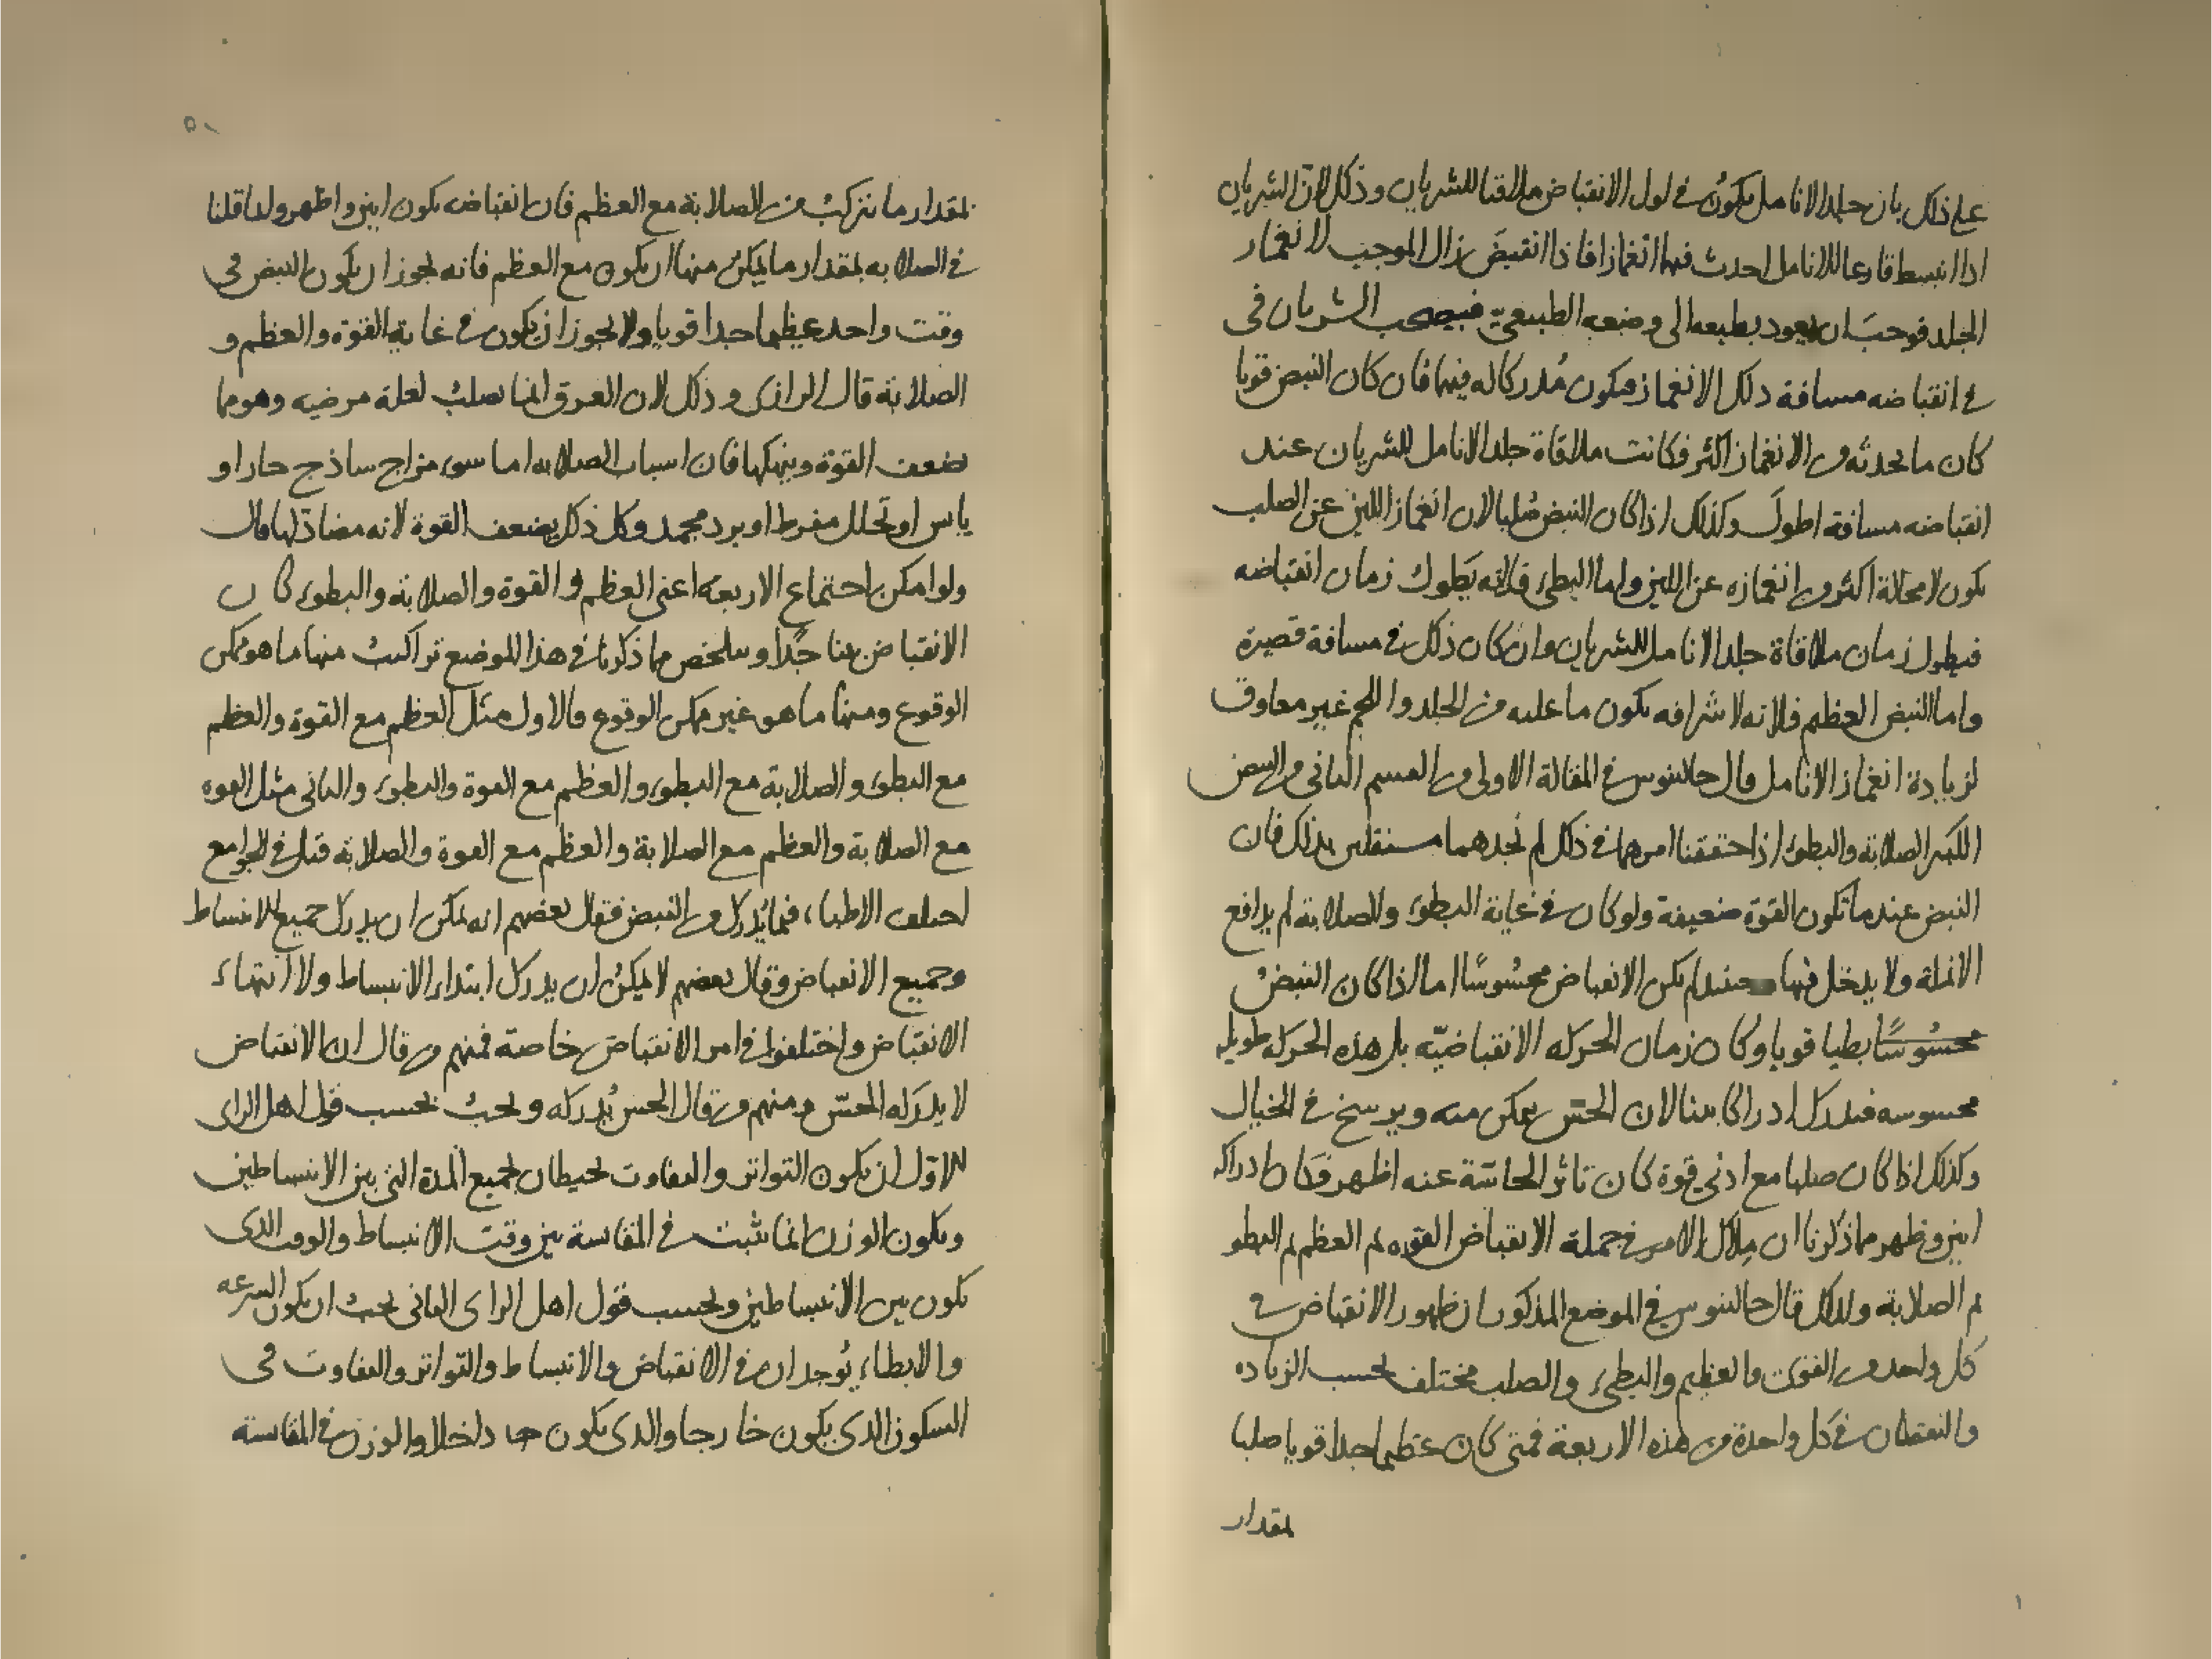 على ذلك بان جلد الانامل يكون في اول الانقباض ملاقيا للشريان وذلك لان الشريان
اذا انبسط قارعا للانامل احدث فيها انغمازا فاذا انقبض زال الموجب لانغماز
الجلد فوجب ان يعود بطبعه الى وضعه الطبيعي فيصحب الشريان في
في انقباضه مسافة ذلك الانغماز فيكون مدركا له فيها فان كان النبض قويا
كان ما يحدثه من الانغماز اكثر فكانت ملاقاة جلد الانامل للشريان عند
انقباضه مسافة اطول وكذلك اذا كان النبض صلبا لان انغماز اللين عن الصلب
يكون لا محالة اكثر من انغمازه عن اللين واما البطئ فلانه يطول زمان انقباضه
فيطول زمان ملاقاة جلد الانامل للشريان وان كان ذلك في مسافة قصيرة
واما النبض العظيم فلانه لاشرافه يكون ما عليه من الجلد واللحم غير معاوق
لزيادة انغماز الانامل قال جالينوس في المقالة الاولى من القسم الثاني من النبض
الكبير الصلابة والبطؤ اذا حققنا امرهما في ذلك لم نجدهما مستقلين بذلك فان
النبض عندما تكون القوة ضعيفة ولو كان في غاية البطؤ والصلابة لم يدافع
الانملة ولا يدخل فيها حينئذ لم يكن الانقباض محسوسا اما اذا كان النبض
محسوسا بطيا قويا وكان زمان الحركة الانقباضية بل هذه الحركة طويلة
محسوسه فيدرك ادراكا بينا لان الحس يمكن منه ويرسخ في الخيال
وكذلك اذا كان صلبا مع ادنى قوة كان تاثر الحاسة عنه اظهر فكان ادراكه
ابين وظهر مما ذكرنا ان ملاك الامر في جملة الانقباض القوه ثم العظم ثم البطو
ثم الصلابة ولذلك قال جالينوس في الموضع المذكور ان ظهور الانقباض في
كل واحد من القوي والعظيم والبطئ والصلب مختلف بحسب الزياده
والنقصان في كل واحدة من هذه الاربعة فمتى كان عظيما جدا قويا صلبا
بمقدار
٥١
بمقدار ما يتركب من الصلابة مع العظم فان انقباضه يكون ابين واظهر وانما قلنا
في الصلابه بمقدار ما يمكن منها ان يكون مع العظم فانه يجوز ان يكون النبض في
وقت واحد عظيما جدا قويا ولا يجوز ان يكون في غاية القوة والعظم و
الصلابة قال الرازي وذلك لان العرق انما يصلب لعلة مرضيه وهو مما
يضعف القوة وينهكها فان اسباب الصلابه اما سوء مزاج ساذج حار او
يابس او تحلل مفرط او برد مجمد وكل ذلك يضعف القوة لانه مضاد لها قال
ولو امكن اجتماع الاربعه اعني العظم والقوة والصلابة والبطؤ كان
الانقباض بينا جدا وسلخص مما ذكرنا في هذا الموضع تراكيب منها ما هو ممكن
الوقوع ومنها ما هو غير ممكن الوقوع فالاول مثل العظم مع القوة والعظم
مع البطؤ والصلابة مع البطؤ والعظم مع القوة والبطؤ والثاني مثل القوه
مع الصلابة والعظم مع الصلابة والعظم مع القوة والصلابة قيل في الجوامع
اختلف الاطباء فيما يدرك من النبض فقال بعضهم انه يمكن ان يدرك جميع الانبساط
وجميع الانقباض وقال بعضهم لا يمكن ان يدرك ابتداء الانبساط ولا انتهاء
الانقباض واختلفوا في امر الانقباض خاصة فمنهم من قال ان الانقباض
لا يدركه الحس ومنهم من قال الحس يدركه ويجب بحسب قول اهل الراى
الاول ان يكون التواتر والتفاوت محيطان بجميع المدة التي بين الانبساطين
ويكون الوزن انما يثبت في المقايسة بين وقت الانبساط والوقت الذى
يكون بين الانبساطين وبحسب قول اهل الراى الثاني يجب ان يكون السرعه
والابطاء يوجدان في الانقباض والانبساط والتواتر والتفاوت في
السكون الذى يكون خارجا والذى يكون داخلا والوزن في المقايسة